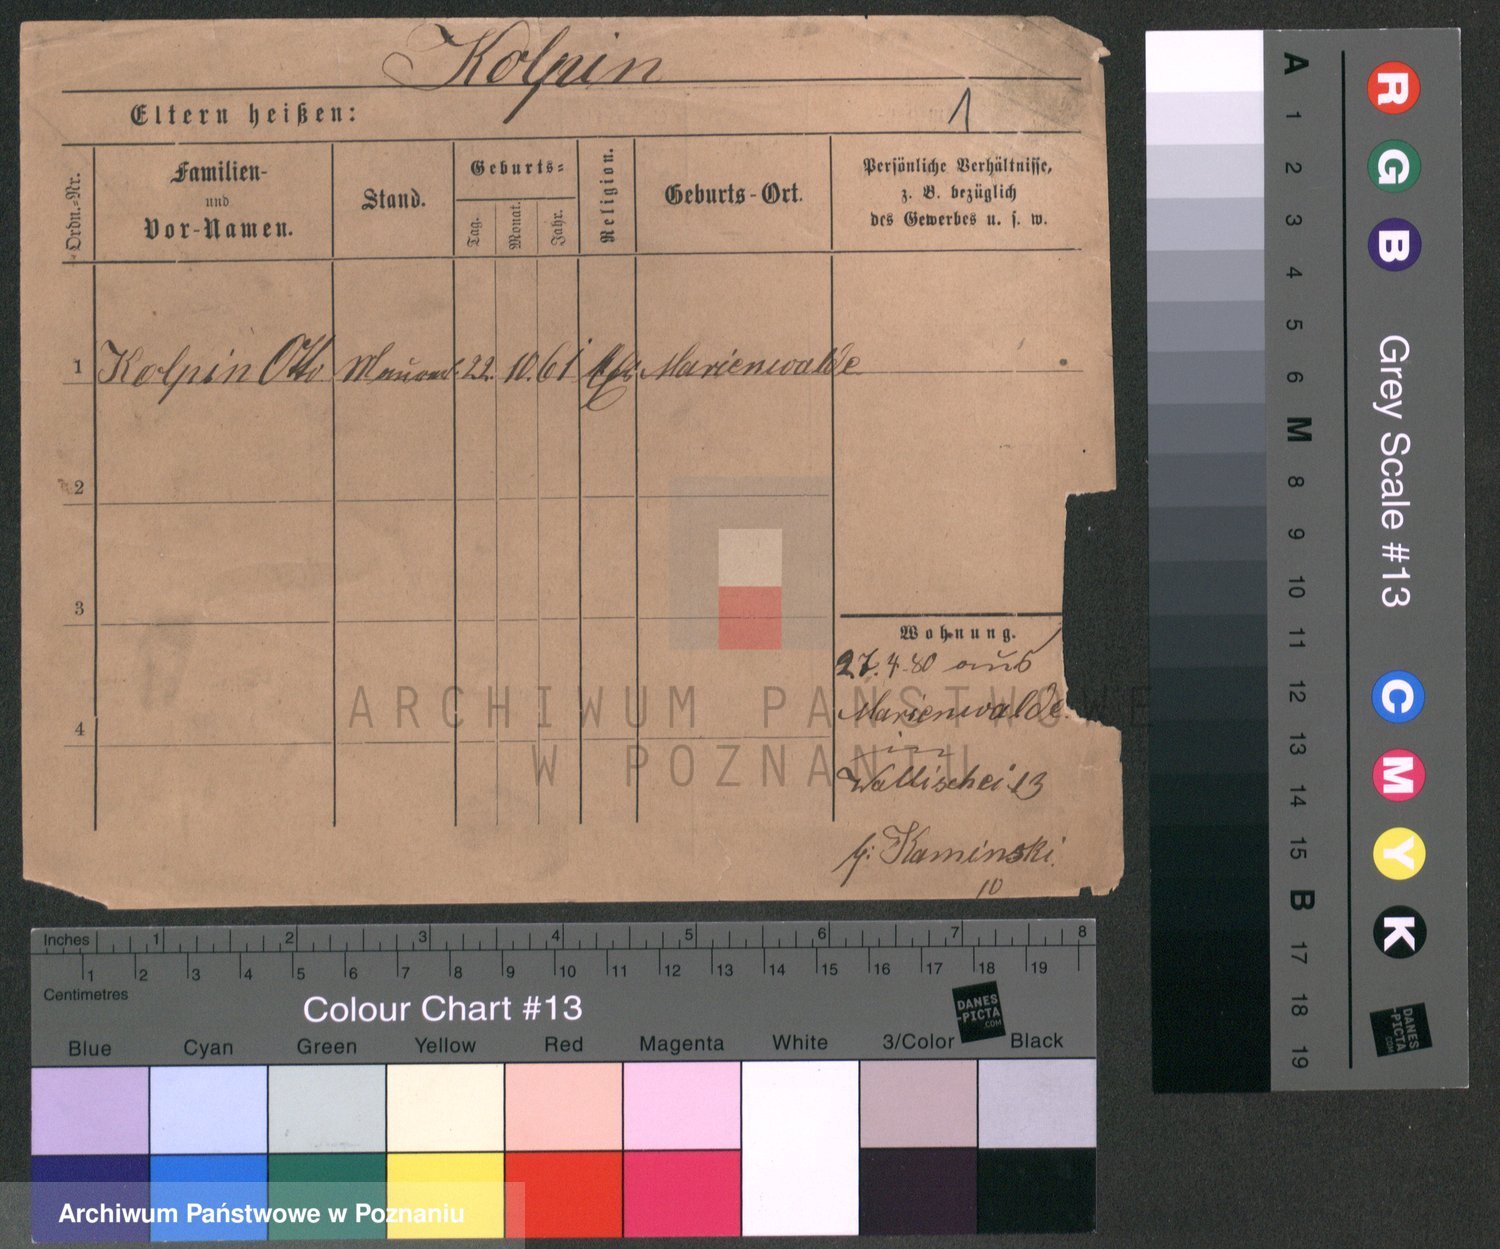 Kolpin
Eltern heißen:
1
Ordn.-Nr.
Familien-
und
Vor-Namen.
Stand.
Geburts-
Tag.
Monat.
Jahr.
Religion.
Geburts-Ort.
Persönliche Verhältnisse,
z. B. bezüglich
des Gewerbes u. s. w.
1 Kolpin Otto 22. 10. 61 Marienwalde
2
3
4
Wohnung.
27.4.80 aus
Marienwalde
Wallischei 13
b: Kaminski
10
ARCHIWUM PAŃSTWOWE
W POZNANIU
Inches 1 2 3 4 5 6 7 8
1 2 3 4 5 6 7 8 9 10 11 12 13 14 15 16 17 18 19
Centimetres
Colour Chart #13
DANES
-PICTA
.COM
Blue Cyan Green Yellow Red Magenta White 3/Color Black
Archiwum Państwowe w Poznaniu
R G B Grey Scale #13 C M Y K
A 1 2 3 4 5 6 M 8 9 10 11 12 13 14 15 B 17 18 19
DANES
-PICTA
.COM